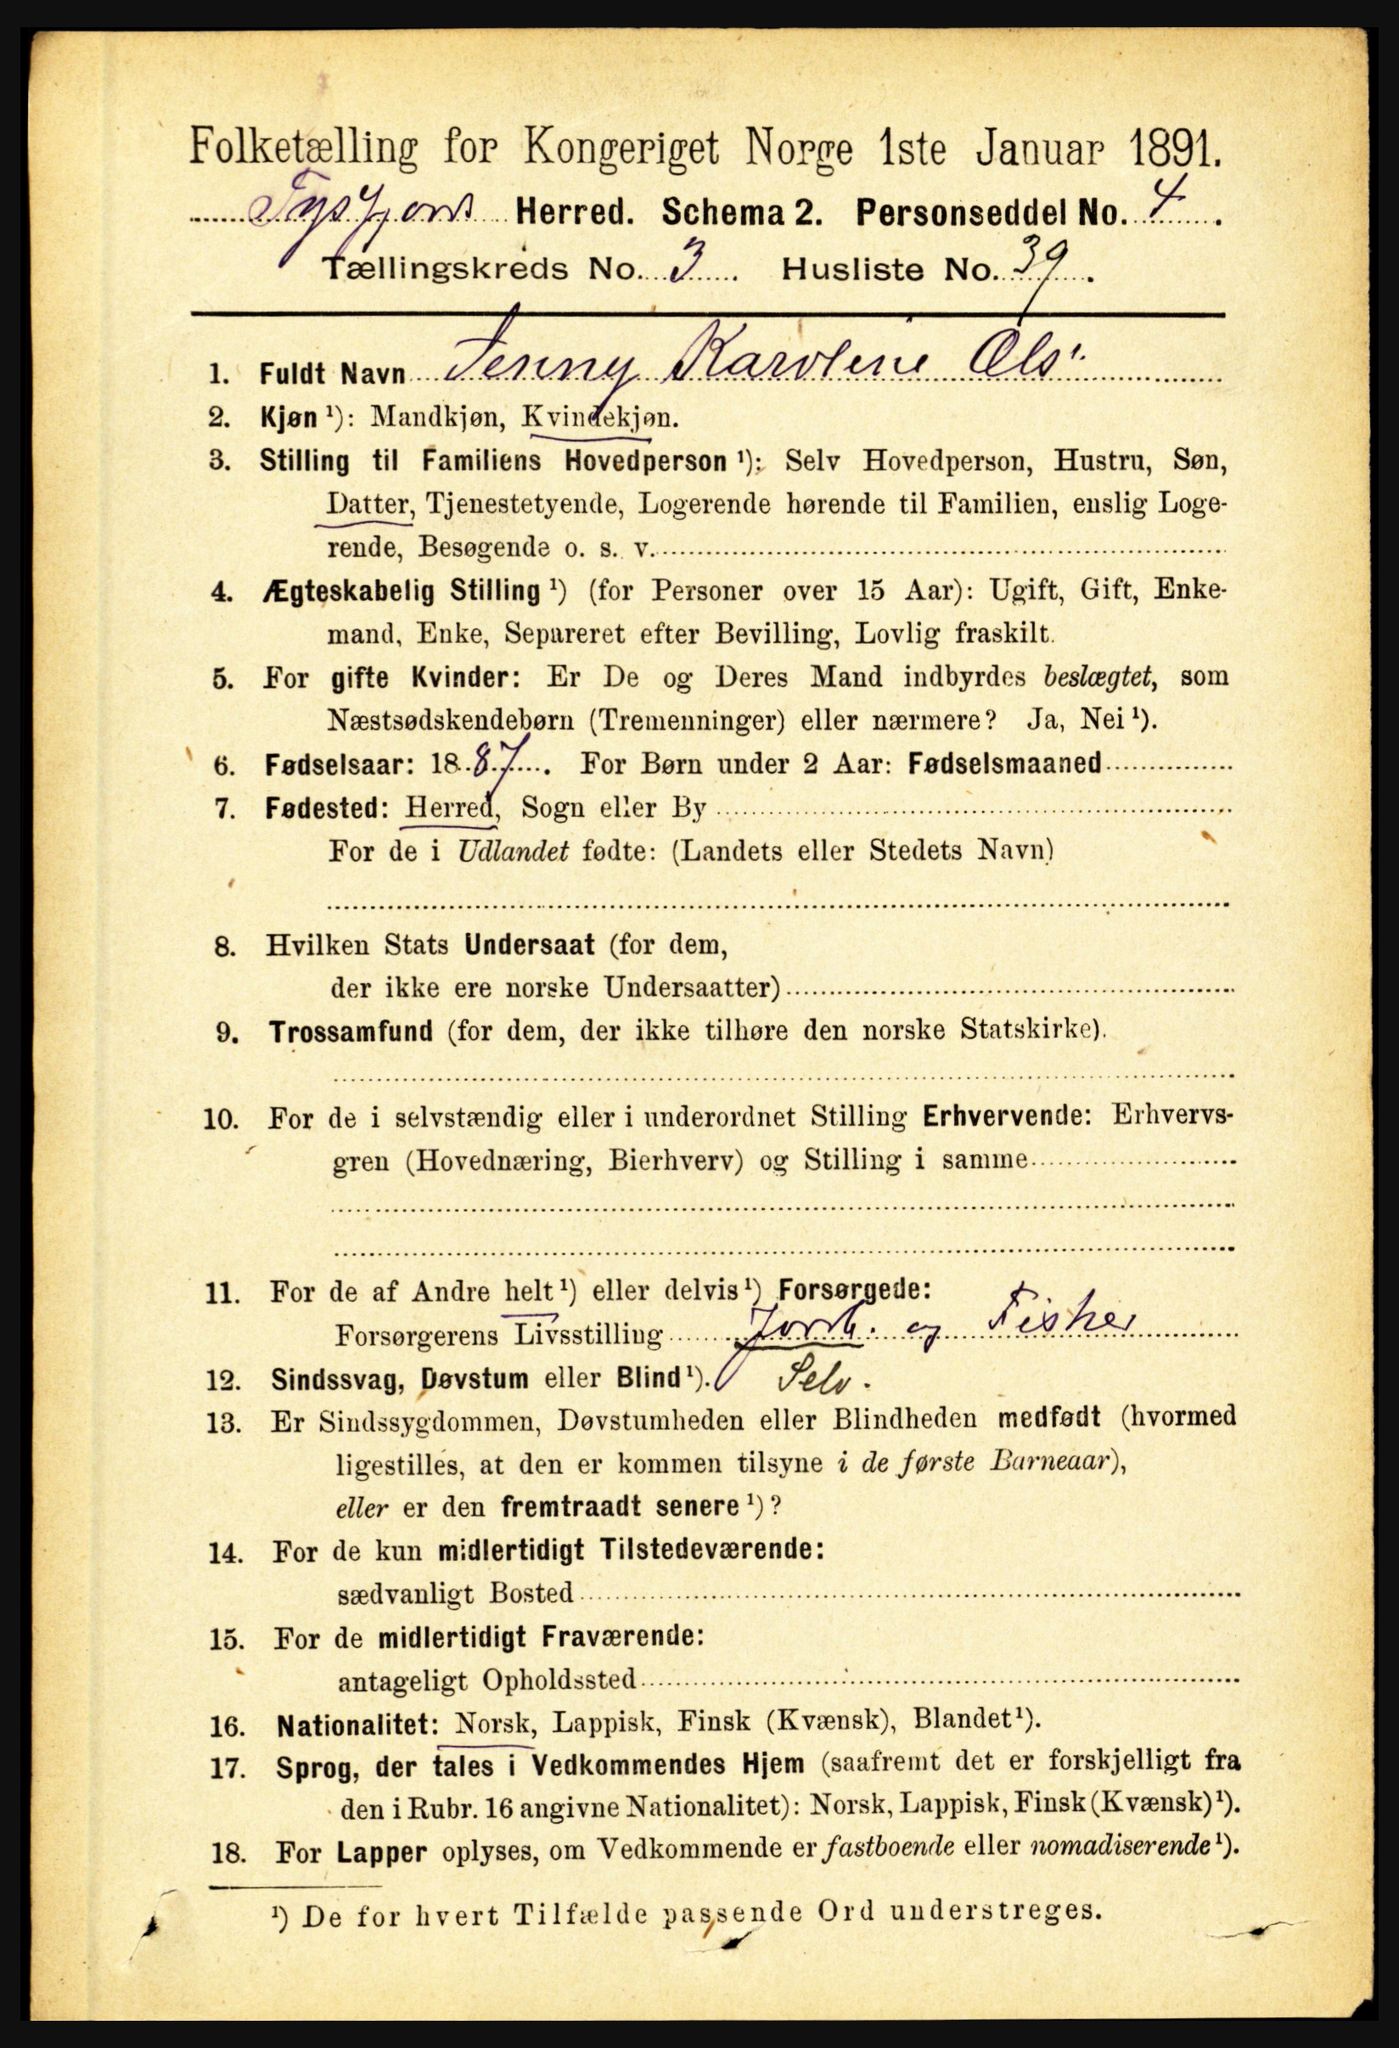 Folketælling for Kongeriget Norge 1ste Januar 1891.
Tysfjord Herred. Schema 2. Personseddel No. 4.
Tællingskreds No. 3. Husliste No. 39.
1. Fuldt Navn Jenny Karoline Ols'
2. Kjøn ¹): Mandkjøn, Kvindekjøn.
3. Stilling til Familiens Hovedperson ¹): Selv Hovedperson, Hustru, Søn,
Datter, Tjenestetyende, Logerende hørende til Familien, enslig Loge-
rende, Besøgende o. s. v.
4. Ægteskabelig Stilling ¹) (for Personer over 15 Aar): Ugift, Gift, Enke-
mand, Enke, Separeret efter Bevilling, Lovlig fraskilt.
5. For gifte Kvinder: Er De og Deres Mand indbyrdes beslægtet, som
Næstsødskendebørn (Tremenninger) eller nærmere? Ja, Nei ¹).
6. Fødselsaar: 1887. For Børn under 2 Aar: Fødselsmaaned
7. Fødested: Herred, Sogn eller By
For de i Udlandet fødte: (Landets eller Stedets Navn)
8. Hvilken Stats Undersaat (for dem,
der ikke ere norske Undersaatter)
9. Trossamfund (for dem, der ikke tilhøre den norske Statskirke).
10. For de i selvstændig eller i underordnet Stilling Erhvervende: Erhvervs-
gren (Hovednæring, Bierhverv) og Stilling i samme
11. For de af Andre helt ¹) eller delvis ¹) Forsørgede:
Forsørgerens Livsstilling Jordb. og Fisker
12. Sindssvag, Døvstum eller Blind ¹). Selv.
13. Er Sindssygdommen, Døvstumheden eller Blindheden medfødt (hvormed
ligestilles, at den er kommen tilsyne i de første Barneaar),
eller er den fremtraadt senere ¹)?
14. For de kun midlertidigt Tilstedeværende:
sædvanligt Bosted
15. For de midlertidigt Fraværende:
antageligt Opholdssted
16. Nationalitet: Norsk, Lappisk, Finsk (Kvænsk), Blandet ¹).
17. Sprog, der tales i Vedkommendes Hjem (saafremt det er forskjelligt fra
den i Rubr. 16 angivne Nationalitet): Norsk, Lappisk, Finsk (Kvænsk) ¹).
18. For Lapper oplyses, om Vedkommende er fastboende eller nomadiserende ¹).
¹) De for hvert Tilfælde passende Ord understreges.